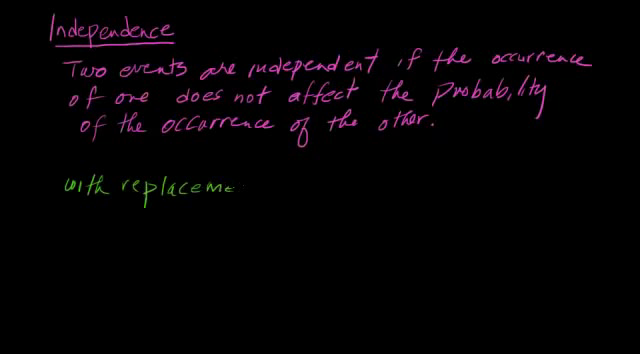 Independence
Two events are independent if the occurrence
of one does not affect the Probability
of the occurrence of the other.
with replaceme